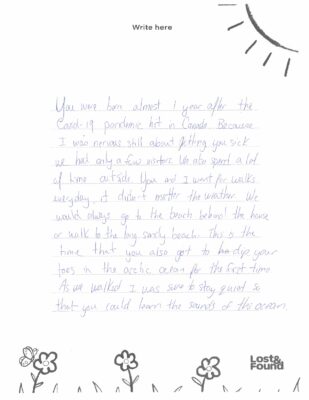 Write here
You were born almost 1 year after the
Covid-19 pandemic hit in Canada. Because
I was nervous still about getting you sick
we had only a few visitors. We also spent a lot
of time outside. You and I went for walks
everyday, it didn't matter the weather. We
would always go to the beach behind the house
or walk to the big sandy beach. This is the
time that you also got to dip your
toes in the arctic ocean for the first time
As we walked I was sure to stay quiet so
that you could learn the sounds of the ocean.
Lost&
Found